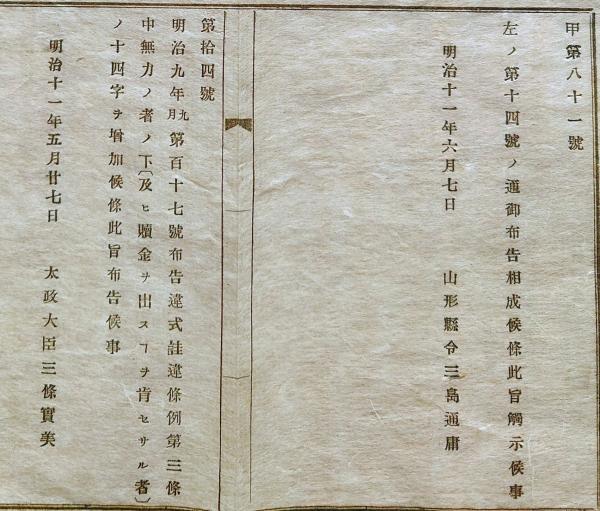 甲第八十一號
左ノ第十四號ノ通御布告相成候條此旨觸示候事
明治十一年六月七日　山形縣令三島通庸
第拾四號
明治九年九月第百十七號布告違式註違條例第三條
中無力ノ者ノ下〔及ヒ贖金ヲ出スヿヲ肯セサル者〕
ノ十四字ヲ增加候條此旨布告候事
明治十一年五月廿七日　太政大臣三條實美